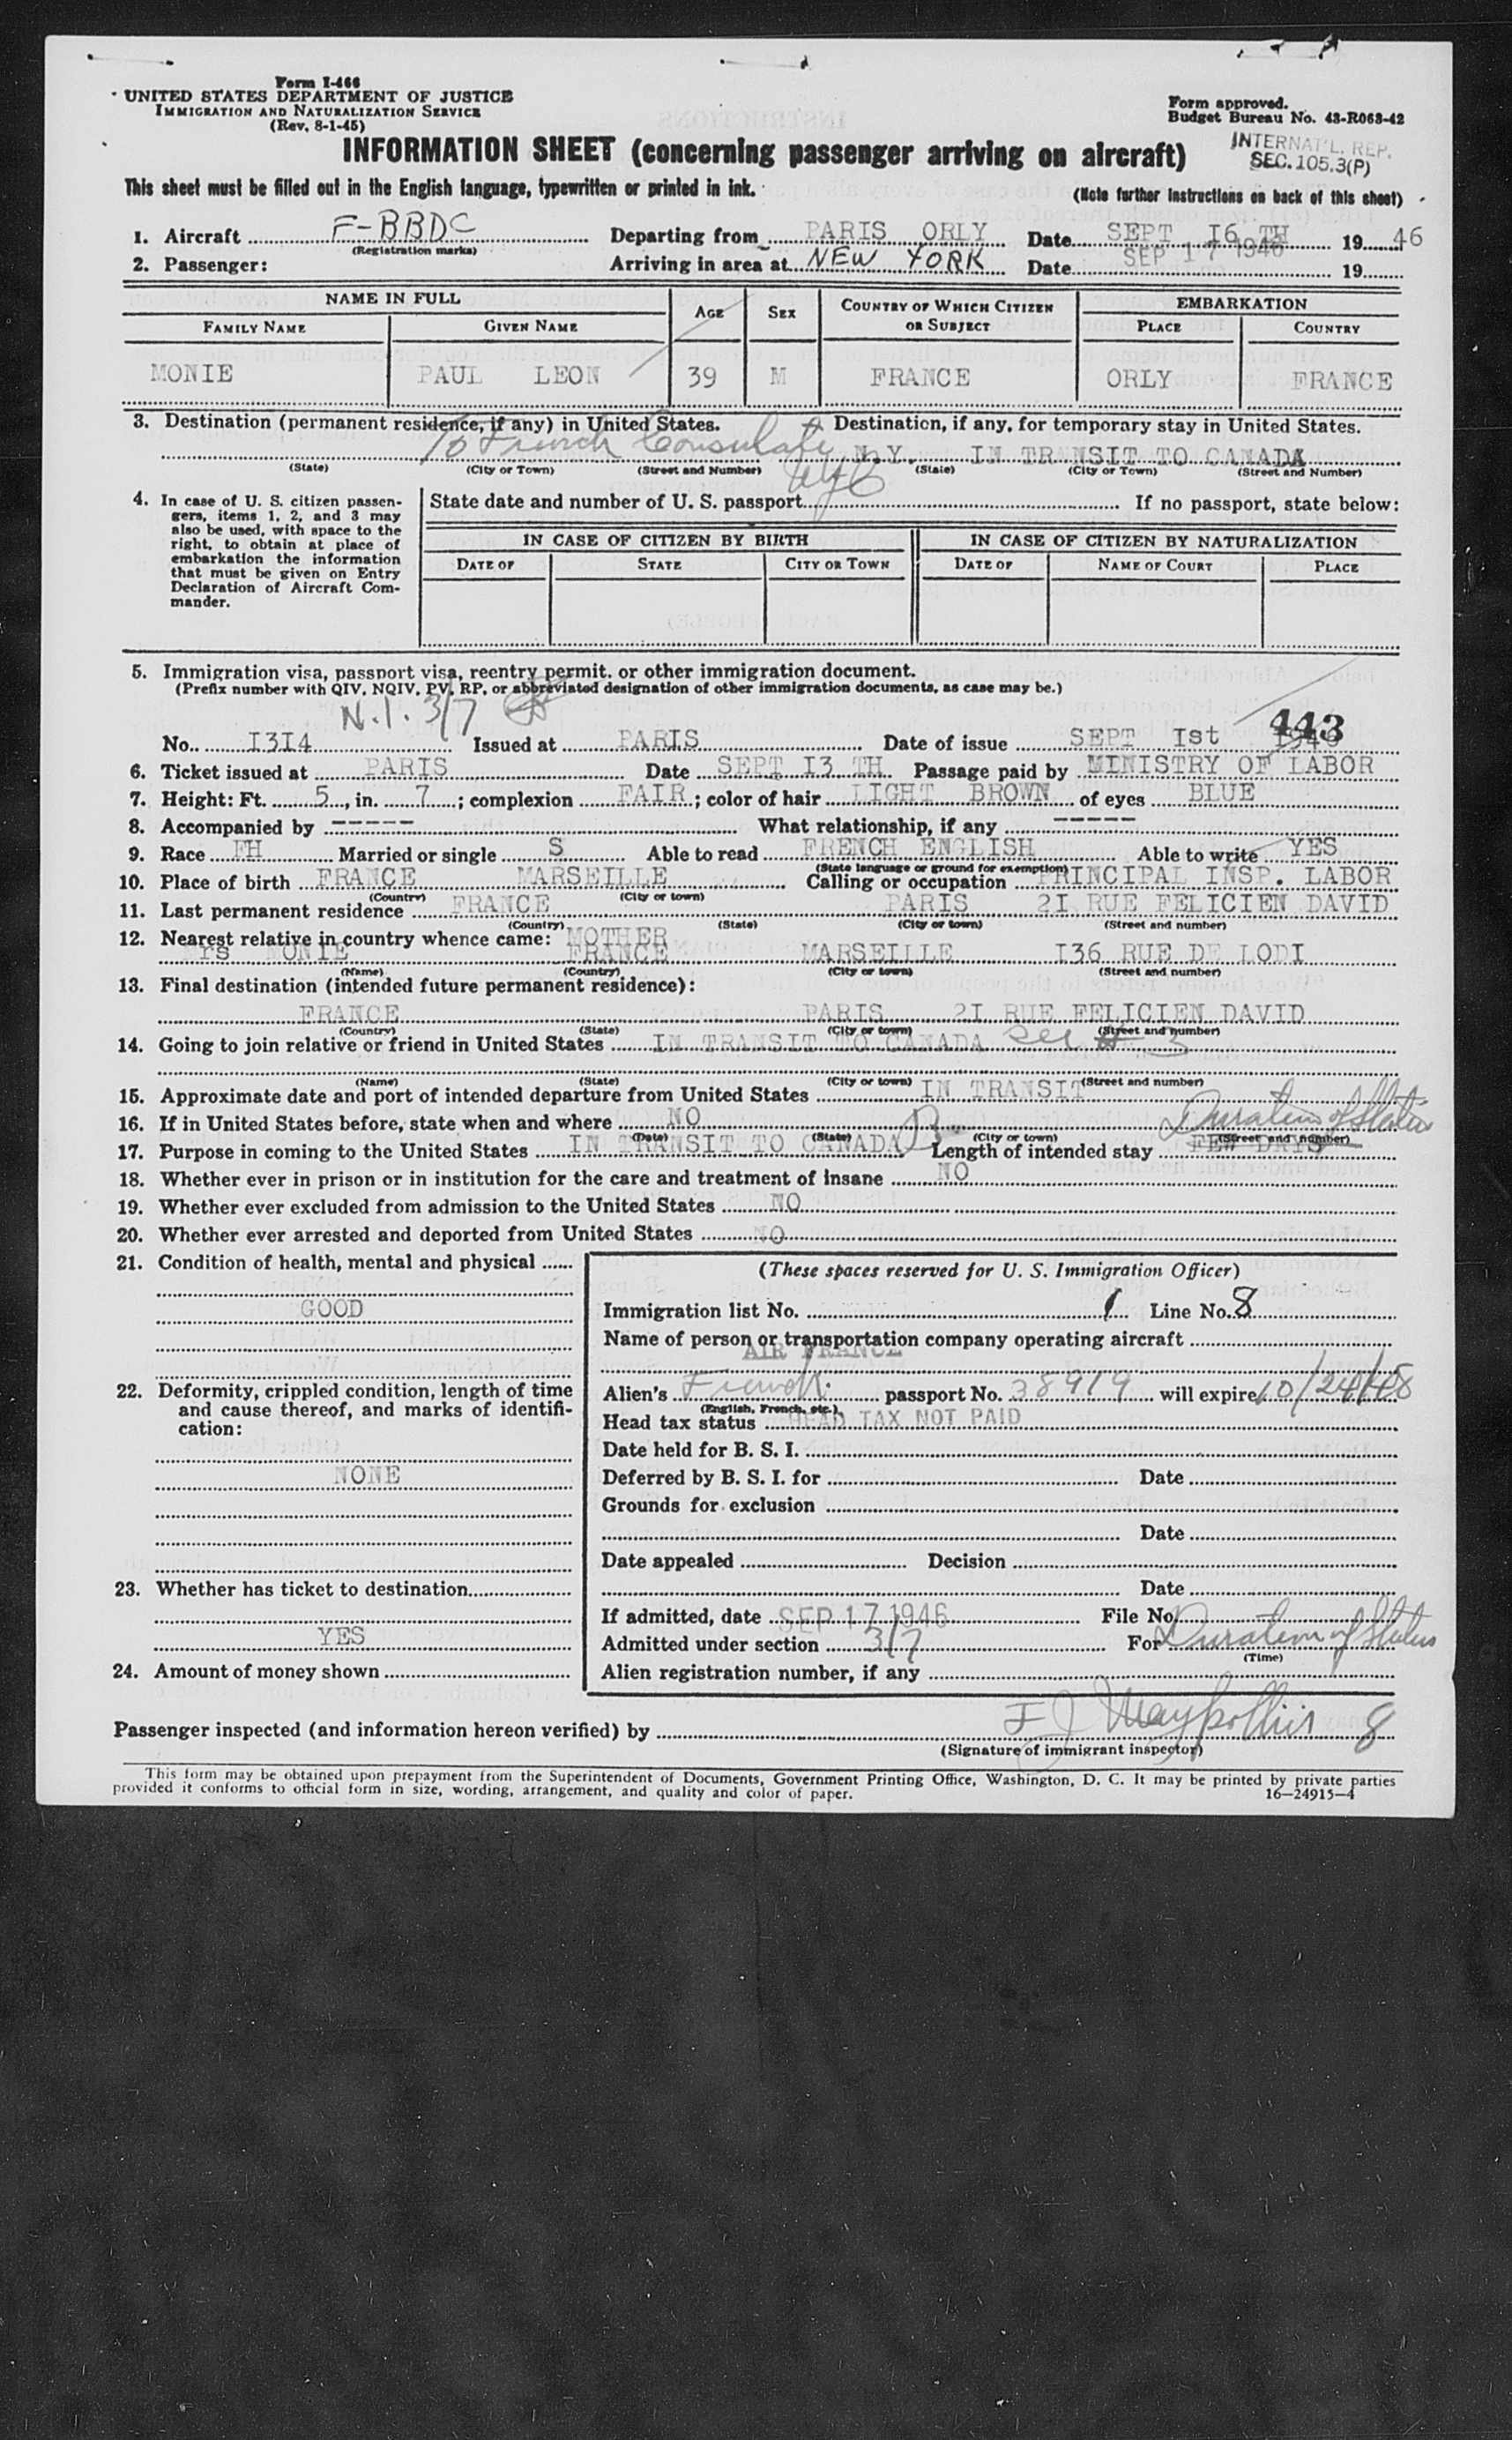 Form I-466
UNITED STATES DEPARTMENT OF JUSTICE
IMMIGRATION AND NATURALIZATION SERVICE
(Rev. 8-1-45)
Form approved.
Budget Bureau No. 43-R063-42
INFORMATION SHEET (concerning passenger arriving on aircraft)
INTERNAT'L. REP.
SEC. 105.3(P)
This sheet must be filled out in the English language, typewritten or printed in ink.
(Note further instructions on back of this sheet)
1. Aircraft F-BBDC Departing from PARIS ORLY Date SEPT I6 TH 1946
(Registration marks)
2. Passenger: Arriving in area at NEW YORK Date SEP 17 1946 19
NAME IN FULL AGE SEX COUNTRY OF WHICH CITIZEN OR SUBJECT EMBARKATION
FAMILY NAME GIVEN NAME PLACE COUNTRY
MONIE PAUL LEON 39 M FRANCE ORLY FRANCE
3. Destination (permanent residence, if any) in United States. Destination, if any, for temporary stay in United States.
To French Consulate N.Y. IN TRANSIT TO CANADA
(State) (City or Town) (Street and Number) (State) (City or Town) (Street and Number)
NYC
4. In case of U. S. citizen passengers, items 1, 2, and 3 may also be used, with space to the right, to obtain at place of embarkation the information that must be given on Entry Declaration of Aircraft Commander.
State date and number of U. S. passport If no passport, state below:
IN CASE OF CITIZEN BY BIRTH IN CASE OF CITIZEN BY NATURALIZATION
DATE OF STATE CITY OR TOWN DATE OF NAME OF COURT PLACE
5. Immigration visa, passport visa, reentry permit, or other immigration document.
(Prefix number with QIV, NQIV, PV, RP, or abbreviated designation of other immigration documents, as case may be.)
N.I. 3/7
443
No. I3I4 Issued at PARIS Date of issue SEPT Ist 1946
6. Ticket issued at PARIS Date SEPT I3 TH Passage paid by MINISTRY OF LABOR
7. Height: Ft. 5, in. 7; complexion FAIR; color of hair LIGHT BROWN of eyes BLUE
8. Accompanied by ----- What relationship, if any -----
9. Race FH Married or single S Able to read FRENCH ENGLISH Able to write YES
(State language or ground for exemption)
10. Place of birth FRANCE MARSEILLE Calling or occupation PRINCIPAL INSP. LABOR
(Country) (City or town)
11. Last permanent residence FRANCE PARIS 2I RUE FELICIEN DAVID
(Country) (State) (City or town) (Street and number)
12. Nearest relative in country whence came: MOTHER
MRS MONIE FRANCE MARSEILLE I36 RUE DE LODI
(Name) (Country) (City or town) (Street and number)
13. Final destination (intended future permanent residence):
FRANCE PARIS 2I RUE FELICIEN DAVID
(Country) (State) (City or town) (Street and number)
14. Going to join relative or friend in United States IN TRANSIT TO CANADA See # 3
(Name) (State) (City or town) (Street and number)
15. Approximate date and port of intended departure from United States IN TRANSIT
16. If in United States before, state when and where NO Duration of Status
(Date) (State) (City or town) (Street and number)
17. Purpose in coming to the United States IN TRANSIT TO CANADA Length of intended stay FEW DAYS
18. Whether ever in prison or in institution for the care and treatment of insane NO
19. Whether ever excluded from admission to the United States NO
20. Whether ever arrested and deported from United States NO
21. Condition of health, mental and physical
GOOD
22. Deformity, crippled condition, length of time and cause thereof, and marks of identification:
NONE
23. Whether has ticket to destination
YES
24. Amount of money shown
(These spaces reserved for U. S. Immigration Officer)
Immigration list No. 1 Line No. 8
Name of person or transportation company operating aircraft
AIR FRANCE
Alien's French passport No. 38919 will expire 10/24/48
(English, French, etc.)
Head tax status HEAD TAX NOT PAID
Date held for B. S. I.
Deferred by B. S. I. for Date
Grounds for exclusion
Date
Date appealed Decision
Date
If admitted, date SEP 17 1946 File No.
Admitted under section 3/7 For Duration of Status
(Time)
Alien registration number, if any
Passenger inspected (and information hereon verified) by F J 8
(Signature of immigrant inspector)
This form may be obtained upon prepayment from the Superintendent of Documents, Government Printing Office, Washington, D. C. It may be printed by private parties
provided it conforms to official form in size, wording, arrangement, and quality and color of paper. 16—24915-4